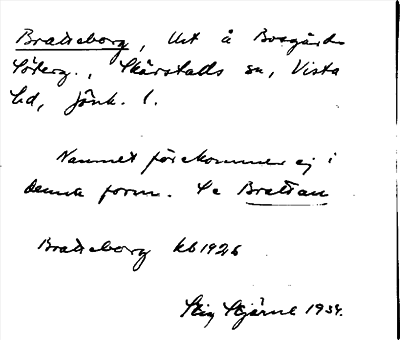 Bratteborg, Ust å Bosgårds
Söterg., Skärstads sn, Vista
hd, Jönk. l.
Namnet förekommer ej i
denna form. Se Brattan
Bratteborg kb 1926
Stig Stjärne 1934.